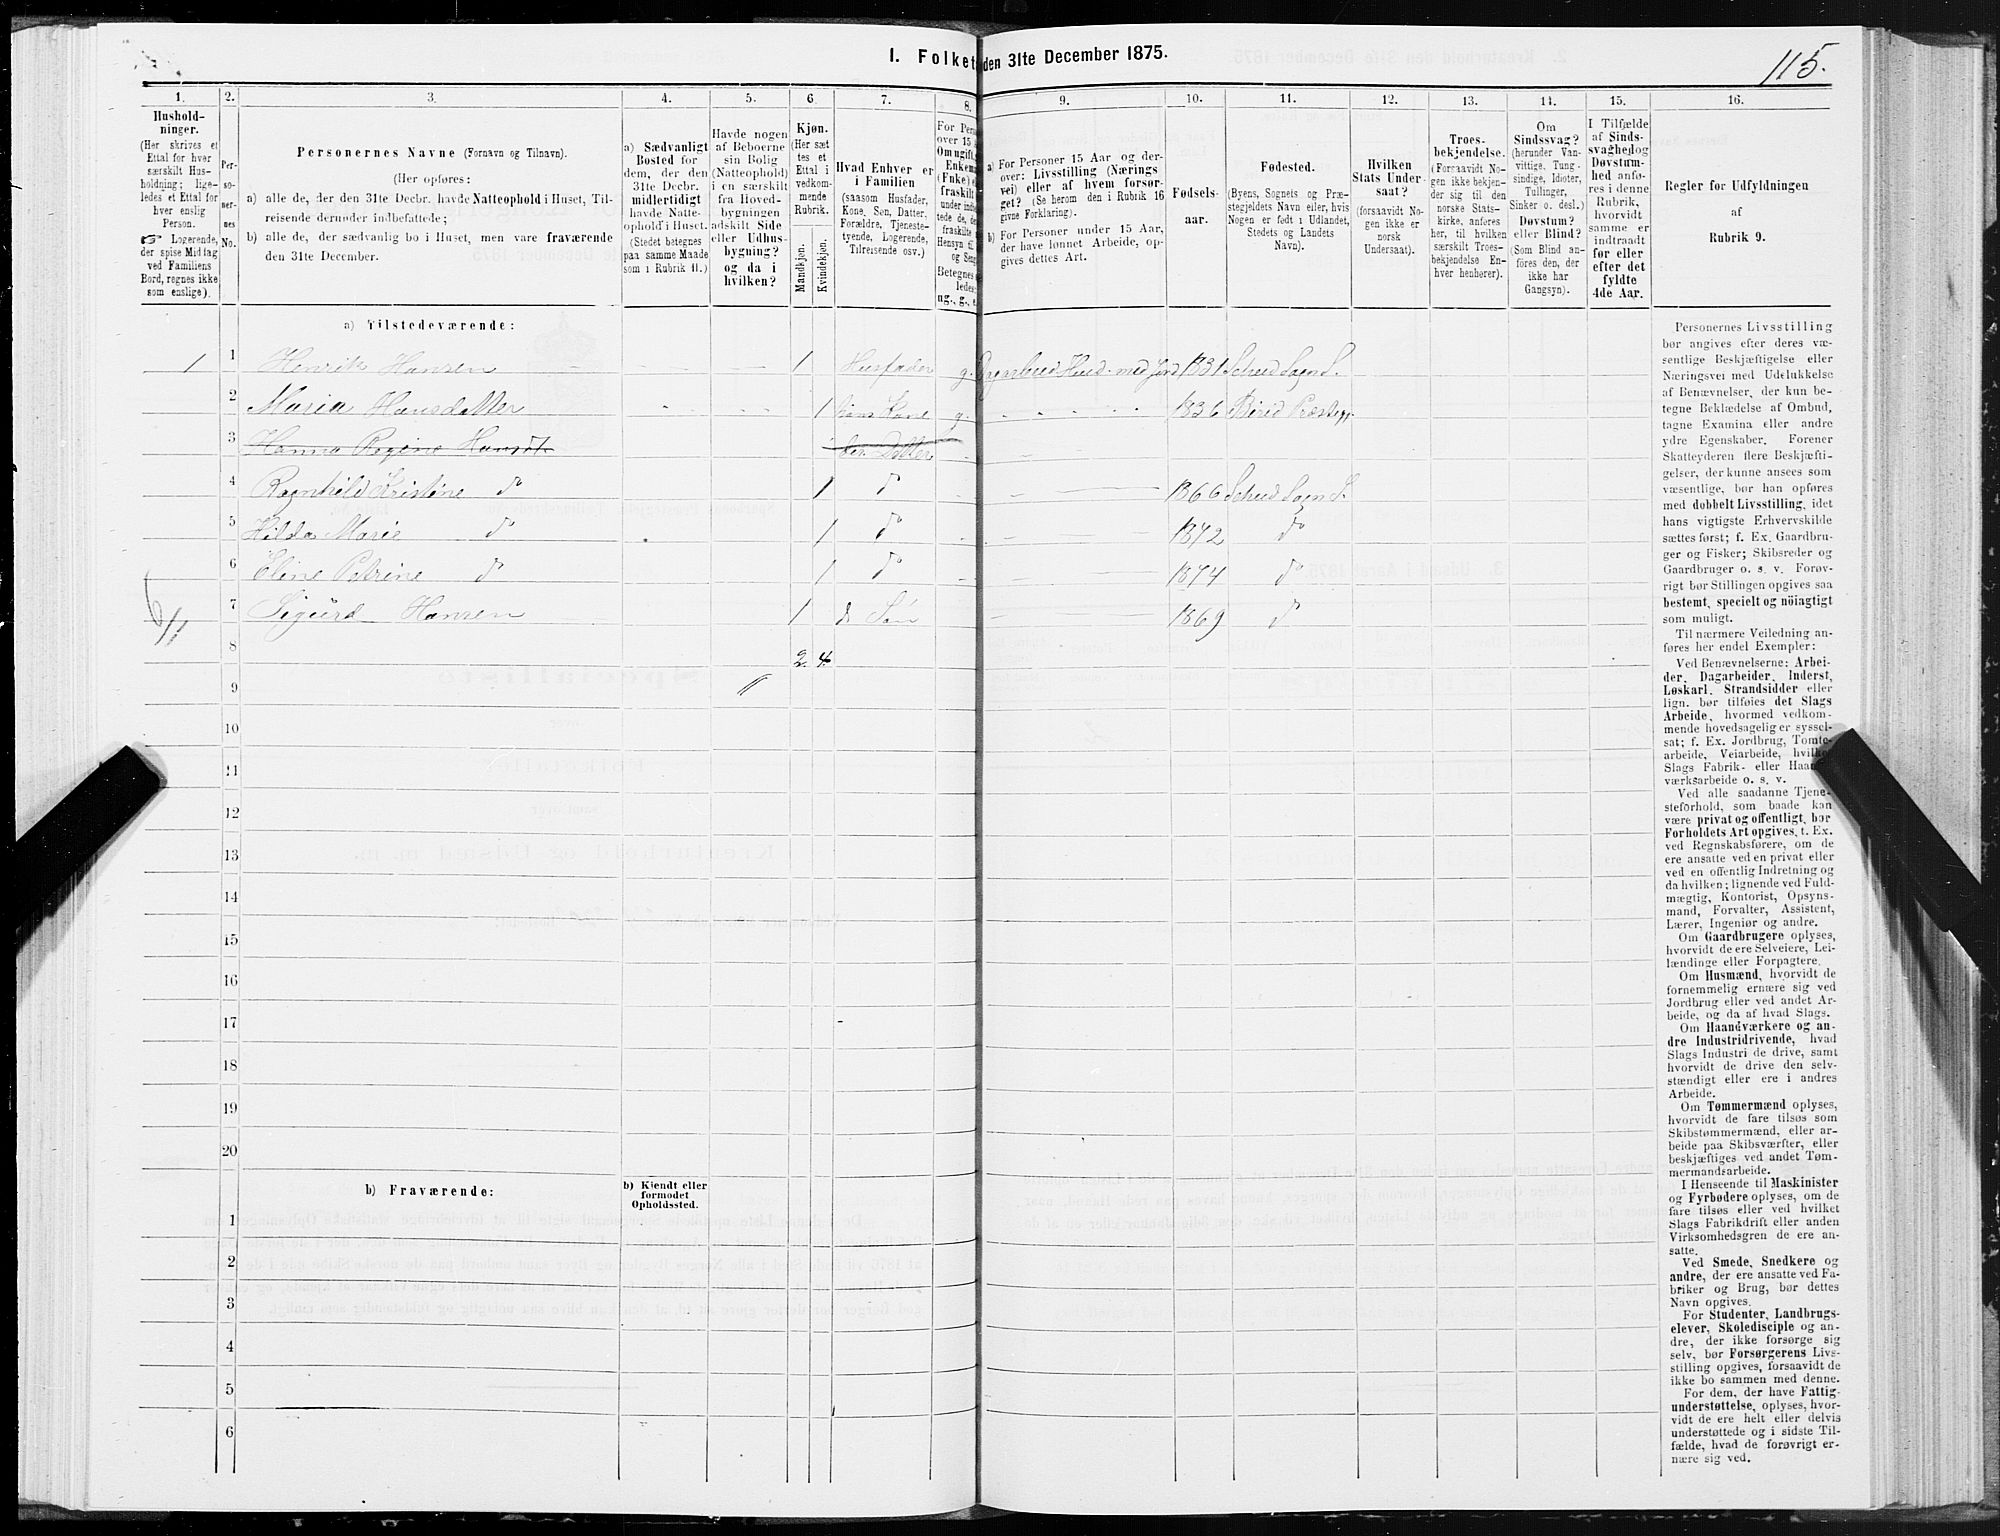 I. Folket den 31te December 1875.
115.
1.
Hushold-
ninger.
(Her skrives et
Ettal for hver
særskilt Hus-
holdning; lige-
ledes et Ettal for
hver enslig
Person.
☞ Logerende,
der spise Middag
ved Familiens
Bord, regnes ikke
som enslige).
2.
Per-
so-
ner-
nes
No.
3.
Personernes Navne (Fornavn og Tilnavn).
(Her opføres:
a) alle de, der den 31te Decbr. havde Natteophold i Huset, Til-
reisende derunder indbefattede;
b) alle de, der sædvanlig bo i Huset, men vare fraværende
den 31te December.
4.
a) Sædvanligt
Bosted for
dem, der den
31te Decbr.
midlertidigt
havde Natte-
ophold i Huset.
(Stedet betegnes
paa samme Maade
som i Rubrik 11.)
5.
Havde nogen
af Beboerne
sin Bolig
(Natteophold)
i en særskilt
fra Hoved-
bygningen
adskilt Side
eller Udhus-
bygning?
og da i
hvilken?
6.
Kjøn.
(Her sæt
tes et
Ettal i
vedkom-
mende
Rubrik.
Mandkjøn.
Kvindekjøn.
7.
Hvad Enhver er
i Familien
(saasom Husfader,
Kone, Søn, Datter,
Forældre, Tjeneste-
tyende, Logerende,
Tilreisende osv.).
8.
For Pers
over 15 A
Om ugift,
Enkem
(Fnke) e
fraskilt
under inds
tede de, de
fraskilte
Hensyn til
og Seng
Betegnes
ledes:
ug., g., e.
9.
a) For Personer 15 Aar og der-
over: Livsstilling (Nærings
vei) eller af hvem forsør-
get? (Se herom den i Rubrik 16
givne Forklaring).
b) For Personer under 15 Aar,
der have lønnet Arbeide, op-
gives dettes Art.
10.
Fødsels-
aar.
11.
Fødested.
(Byens, Sognets og Præ-
stegjeldets Navn eller, hvis
Nogen er født i Udlandet,
Stedets og Landets
Navn).
12.
Hvilken
Stats Under-
saat?
(forsaavidt No-
gen ikke er
norsk
Undersaat).
13.
Troes-
bekjendelse.
(Forsaavidt No-
gen ikke bekjen-
der sig til den
norske Stats-
kirke, anføres
her, til hvilken
særskilt Troes-
bekjendelse En-
hver henhører).
14.
Om
Sindssvag?
(herunder Van-
vittige, Tung-
sindige, Idioter,
Tullinger,
Sinker o. desl.)
Døvstum?
eller Blind?
(Som Blind an-
føres den, der
ikke har
Gangsyn).
15.
I Tilfælde
af Sinds-
svaghed og
Døvstum-
hed anfø-
res i denne
Rubrik,
hvorvidt
samme er
indtraadt
før eller
efter det
fyldte
4de Aar.
16.
Regler for Udfyldningen
af
Rubrik 9.
a) Tilstedeværende:
1 1 Henrik Hansen 1 Husfader g. 1831
2 Maria Hansdatter 1 hans Kone g. 1836 Birid Præstegj.
3 Hanna Regine Hansdt. Datter
4 Ragnhild Kristine do 1 do 1866
5 Hilda Marie do 1 do 1872 do
6 Eline Petrine do 1 do 1874 do
7 Sigurd Hansen 1 d. Søn 1869 do
8 2. 4.
9
10
11
12
13
14
15
16
17
18
19
20
b) Fraværende:
b) Kjendt eller
formodet
Opholdssted.
1
2
3
4
5
6
Personernes Livsstilling
bør angives efter deres væ-
sentlige Beskjæftigelse eller
Næringsvei med Udelukkelse
af Benævnelser, der kun be-
tegne Beklædelse af Ombud,
tagne Examina eller andre
ydre Egenskaber. Forener
Skatteyderen flere Beskjæfti-
gelser, der kunne ansees som
væsentlige, bør han opføres
med dobbelt Livsstilling, idet
hans vigtigste Erhvervskilde
sættes først; f. Ex. Gaardbru-
ger og Fisker; Skibsreder og
Gaardbruger o. s. v. Forøv-
rigt bør Stillingen opgives saa
bestemt, specielt og nöiagtigt
som muligt.
Til nærmere Veiledning an-
føres her endel Exempler:
Ved Benævnelserne: Arbei-
der, Dagarbeider, Inderst,
Løskarl, Strandsidder eller
lign. bør tilføies det Slags
Arbeide, hvormed vedkom-
mende hovedsagelig er syssel-
sat; f. Ex. Jordbrug, Tomte-
arbeide, Veiarbeide, hvilket
Slags Fabrik- eller Haand-
værksarbeide o. s. v.
Ved alle saadanne Tjene-
steforhold, som baade kan
være privat og offentligt, bør
Forholdets Art opgives, t. Ex.
ved Regnskabsførere, om de
ere ansatte ved en privat eller
ved en offentlig Indretning og
da hvilken; lignende ved Fuld-
mægtig, Kontorist, Opsyns-
mand, Forvalter, Assistent,
Lærer, Ingeniør og andre.
Om Gaardbrugere oplyses,
hvorvidt de ere Selveiere, Lei-
lændinge eller Forpagtere.
Om Husmænd, hvorvidt de
fornemmelig ernære sig ved
Jordbrug eller ved andet Ar-
beide, og da af hvad Slags.
Om Haandværkere og an-
dre Industridrivende, hvad
Slags Industri de drive, samt
hvorvidt de drive den selv-
stændigt eller ere i andres
Arbeide.
Om Tømmermænd oplyses,
hvorvidt de fare tilsøs som
Skibstømmermænd, eller ar-
beide paa Skibsværfter, eller
beskjæftiges ved andet Tøm-
mermandsarbeide.
I Henseende til Maskinister
og Fyrbødere oplyses, om de
fare tilsøs eller ved hvilket
Slags Fabrikdrift eller anden
Virksomhedsgren de ere an-
satte.
Ved Smede, Snedkere og
andre, der ere ansatte ved Fa-
briker og Brug, bør dettes
Navn opgives.
For Studenter, Landbrugs-
elever, Skoledisciple og an-
dre, der ikke forsørge sig
selv, bør Forsørgerens Livs-
stilling opgives, forsaavidt de
ikke bo sammen med denne.
For dem, der have Fattig-
understøttelse, oplyses, hvor-
vidt de ere helt eller delvis
understøttede og i sidste Til-
fælde, hvad de forøvrigt er-
nære sig ved.